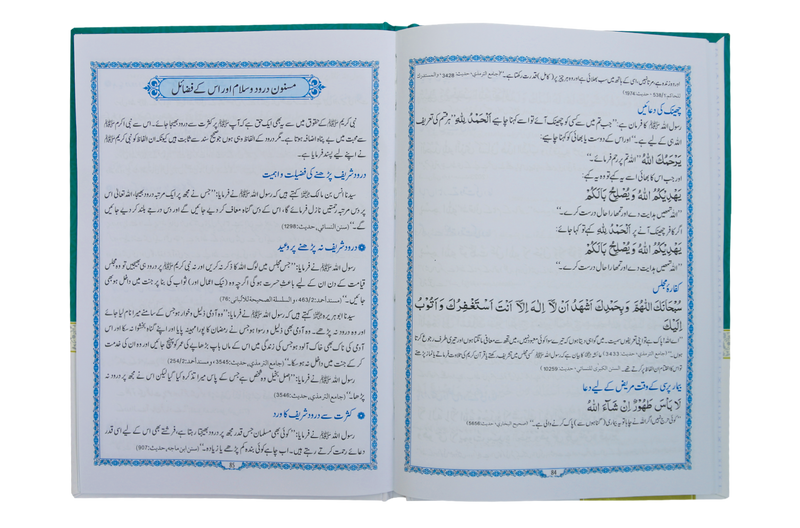 اور زندہ ہے، مرتا نہیں، اسی کے ہاتھ میں سب بھلائی ہے اور وہ ہر چیز پر (کامل) قدرت رکھتا ہے۔" (جامع الترمذي، حدیث: 3428، والمستدرك
للحاكم: 538/1، حدیث: 1974)
چھینک کی دعائیں
رسول اللہ ﷺ کا فرمان ہے: "جب تم میں سے کسی کو چھینک آئے تو اسے کہنا چاہیے اَلْحَمْدُ لِلّٰهِ "ہر قسم کی تعریف
اللہ ہی کے لیے ہے۔" اور اس کے دوست یا بھائی کو کہنا چاہیے:
يَرْحَمُكَ اللّٰهُ "اللہ تم پر رحم فرمائے۔"
اور جب اس کا بھائی اسے یہ کہے تو وہ یہ کہے:
يَهْدِيْكُمُ اللّٰهُ وَيُصْلِحُ بَالَكُمْ
"اللہ تمھیں ہدایت دے اور تمھارا حال درست کرے۔"
اگر کافر چھینک آنے پر اَلْحَمْدُ لِلّٰهِ کہے تو کہا جائے:
يَهْدِيْكُمُ اللّٰهُ وَيُصْلِحُ بَالَكُمْ
"اللہ تمھیں ہدایت دے اور تمھارا حال درست کرے۔"
کفارۂ مجلس
سُبْحَانَكَ اللّٰهُمَّ وَبِحَمْدِكَ اَشْهَدُ اَنْ لَّا اِلٰهَ اِلَّا اَنْتَ اَسْتَغْفِرُكَ وَاَتُوْبُ
اِلَيْكَ
"اے اللہ! پاک ہے تو اپنی تعریفوں سمیت۔ میں گواہی دیتا ہوں کہ تیرے سوا کوئی معبود نہیں، میں تجھ سے معافی مانگتا ہوں اور تیری طرف رجوع کرتا
ہوں۔" (جامع الترمذي، حدیث: 3433)
(السنن الکبری للنسائي، حدیث: 10259)
بیمار پرسی کے وقت مریض کے لیے دعا
لَا بَأْسَ طَهُوْرٌ اِنْ شَآءَ اللّٰهُ
"کوئی حرج نہیں اگر اللہ نے چاہا تو یہ بیماری (گناہوں سے) پاک کرنے والی ہے۔" (صحيح البخاري، حدیث: 5656)
84
مسنون درود و سلام اور اس کے فضائل
نبی کریم ﷺ کے حقوق میں سے یہ بھی ایک حق ہے کہ آپ ﷺ پر کثرت سے درود بھیجا جائے۔ اس سے نبی اکرم ﷺ
سے محبت میں بے پناہ اضافہ ہوتا ہے۔ مگر درود کے الفاظ وہی ہوں جو صحیح سند سے ثابت ہیں کیونکہ ان الفاظ کو نبی کریم ﷺ
نے اپنے لیے پسند فرمایا ہے۔
درود شریف پڑھنے کی فضیلت و اہمیت
سیدنا انس بن مالک کہتے ہیں کہ رسول اللہ ﷺ نے فرمایا: "جس نے مجھ پر ایک مرتبہ درود بھیجا، اللہ تعالیٰ اس
پر دس مرتبہ رحمتیں نازل فرمائے گا، اس کے دس گناہ معاف کر دیے جائیں گے اور دس درجے بلند کر دیے جائیں
گے۔" (سنن النسائي، حدیث: 1298)
درود شریف نہ پڑھنے پر وعید
رسول اللہ ﷺ نے فرمایا: "جس مجلس میں لوگ اللہ کا ذکر نہ کریں اور نہ نبی کریم ﷺ پر درود ہی بھیجیں تو وہ مجلس
قیامت کے دن ان کے لیے باعث حسرت ہوگی اگرچہ وہ (نیک اعمال اور) ثواب کی بنا پر جنت میں داخل بھی ہو
جائیں۔" (مسند احمد: 463/2، والسلسلة الصحيحة للألباني: 76)
سیدنا ابوہریرہ کہتے ہیں کہ رسول اللہ ﷺ نے فرمایا: "وہ آدمی ذلیل و خوار ہو جس کے سامنے میرا نام لیا جائے
اور وہ درود نہ پڑھے۔ وہ آدمی بھی ذلیل و رسوا ہو جس نے رمضان کا پورا مہینہ پایا اور اپنے گناہ بخشوا نہ سکا اور اس
آدمی کی ناک بھی خاک آلود ہو جس کی زندگی میں اس کے ماں باپ بڑھاپے کی عمر کو پہنچ جائیں اور وہ ان کی خدمت
کر کے جنت میں داخل نہ ہو سکا۔" (جامع الترمذي، حدیث: 3545، ومسند أحمد: 254/2)
رسول اللہ ﷺ نے فرمایا: "اصل بخیل وہ شخص ہے جس کے پاس میرا تذکرہ کیا گیا لیکن اس نے مجھ پر درود نہ
پڑھا۔" (جامع الترمذي، حدیث: 3546)
کثرت سے درود شریف کا ورد
رسول اللہ ﷺ نے فرمایا: "کوئی بھی مسلمان جس قدر مجھ پر درود بھیجتا رہتا ہے، فرشتے بھی اس کے لیے اسی قدر
دعائے رحمت کرتے رہتے ہیں۔ اب چاہے کوئی بندہ کم پڑھے یا زیادہ۔" (سنن ابن ماجه، حدیث: 907)
85